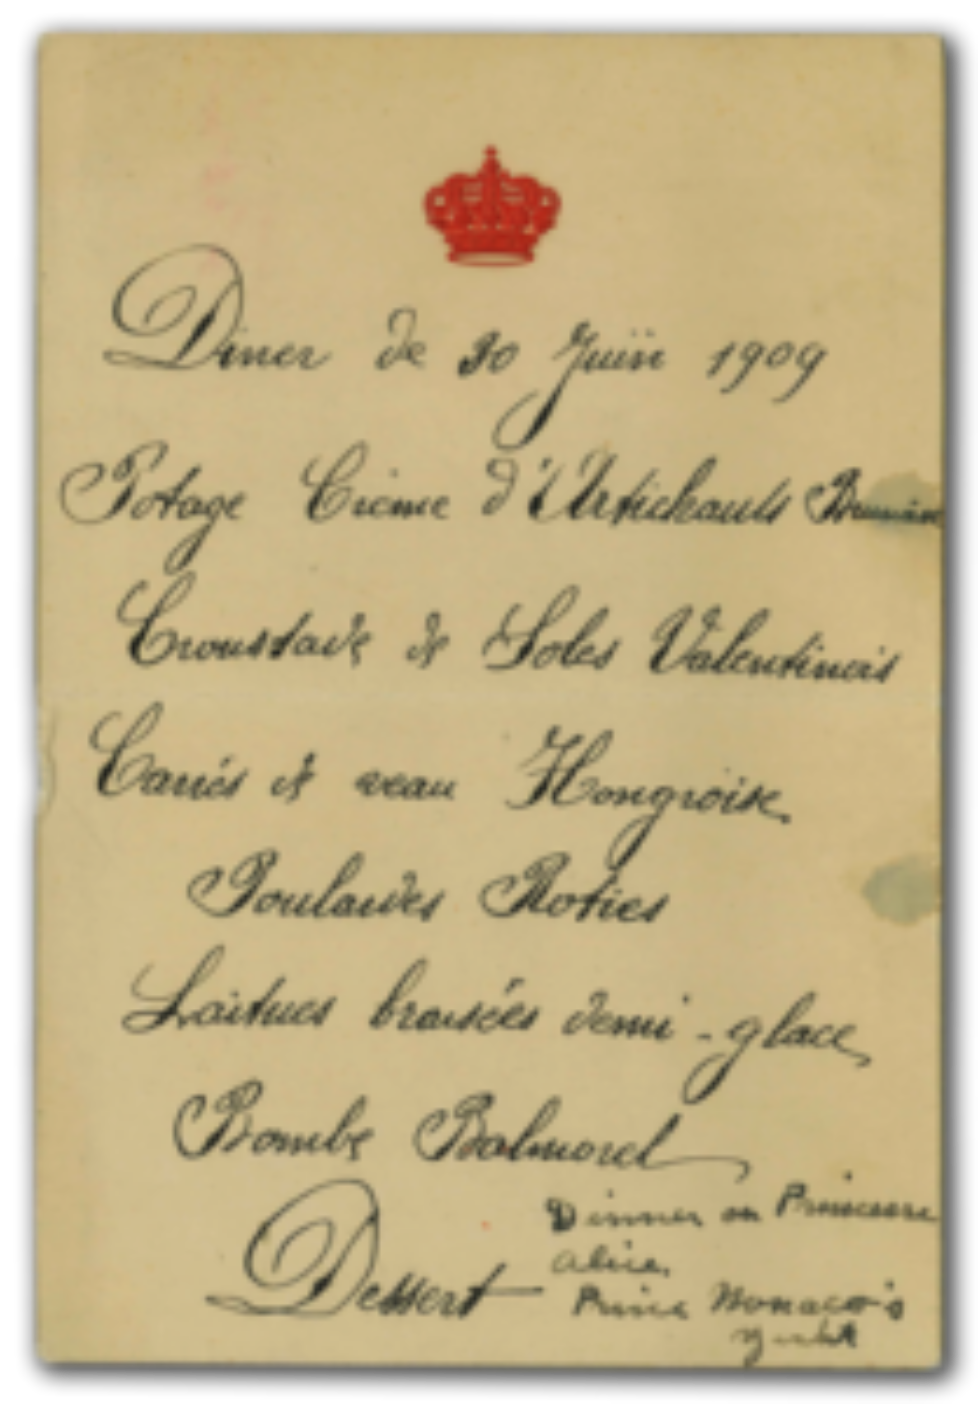 Diner de 30 Juin 1909
Potage Crème d'Artichauts
Croustade de Soles Valentinois
Carrés de veau Hongroise
Poulardes Roties
Laitues braisées demi-glace
Bombe Balmorel
Dessert
Dinner on Princesse
Alice,
Prince Monaco's
yacht